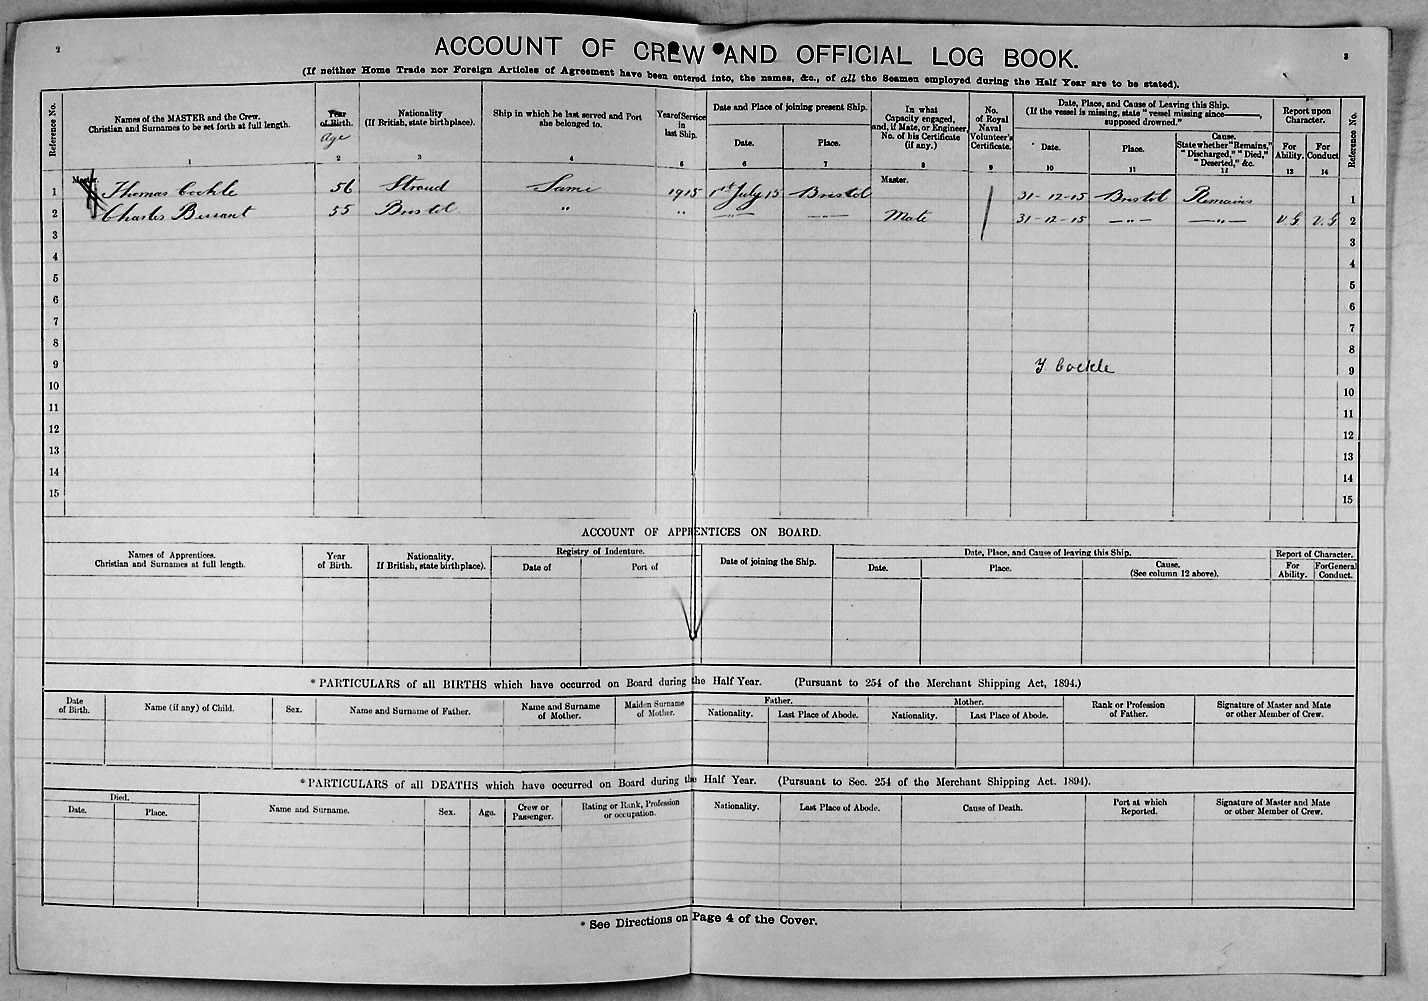 2
3
ACCOUNT OF CREW AND OFFICIAL LOG BOOK.
(If neither Home Trade nor Foreign Articles of Agreement have been entered into, the names, &c., of all the Seamen employed during the Half Year are to be stated).
Reference No.
Names of the MASTER and the Crew. Christian and Surnames to be set forth at full length.
1
Year of Birth.
Age
2
Nationality (If British, state birthplace).
3
Ship in which he last served and Port she belonged to.
4
Year of Service in last Ship.
5
Date and Place of joining present Ship.
Date.
6
Place.
7
In what Capacity engaged, and, if Mate, or Engineer, No. of his Certificate (if any.)
8
No. of Royal Naval Volunteer's Certificate.
9
Date, Place, and Cause of Leaving this Ship.
(If the vessel is missing, state "vessel missing since———, supposed drowned."
Date.
10
Place.
11
Cause. State whether "Remains," "Discharged," "Died," "Deserted," &c.
12
Report upon Character.
For Ability.
13
For Conduct
14
Reference No.
Master.
1 Thomas Cockle 56 Stroud Same 1915 1st July 15 Bristol Master. 31-12-15 Bristol Remains 1
2 Charles Bessant 55 Bristol " " —"— —"— Mate 31-12-15 —"— —"— V.G. V.G 2
3 3
4 4
5 5
6 6
7 7
8 8
9 T. Cockle 9
10 10
11 11
12 12
13 13
14 14
15 15
ACCOUNT OF APPRENTICES ON BOARD.
Names of Apprentices. Christian and Surnames at full length.
Year of Birth.
Nationality. If British, state birthplace).
Registry of Indenture.
Date of
Port of
Date of joining the Ship.
Date, Place, and Cause of leaving this Ship.
Date.
Place.
Cause. (See column 12 above).
Report of Character.
For Ability.
For General Conduct.
* PARTICULARS of all BIRTHS which have occurred on Board during the Half Year. (Pursuant to 254 of the Merchant Shipping Act, 1894.)
Date of Birth.
Name (if any) of Child.
Sex.
Name and Surname of Father.
Name and Surname of Mother.
Maiden Surname of Mother.
Father.
Nationality.
Last Place of Abode.
Mother.
Nationality.
Last Place of Abode.
Rank or Profession of Father.
Signature of Master and Mate or other Member of Crew.
* PARTICULARS of all DEATHS which have occurred on Board during the Half Year. (Pursuant to Sec. 254 of the Merchant Shipping Act. 1894).
Died.
Date.
Place.
Name and Surname.
Sex.
Age.
Crew or Passenger.
Rating or Rank, Profession or occupation.
Nationality.
Last Place of Abode.
Cause of Death.
Port at which Reported.
Signature of Master and Mate or other Member of Crew.
* See Directions on Page 4 of the Cover.